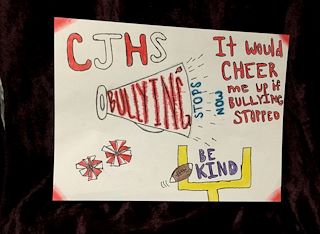 CJHS
BULLYING
STOPS
NOW
It would
CHEER
me up if
BULLYING
STOPPED
BE
KIND